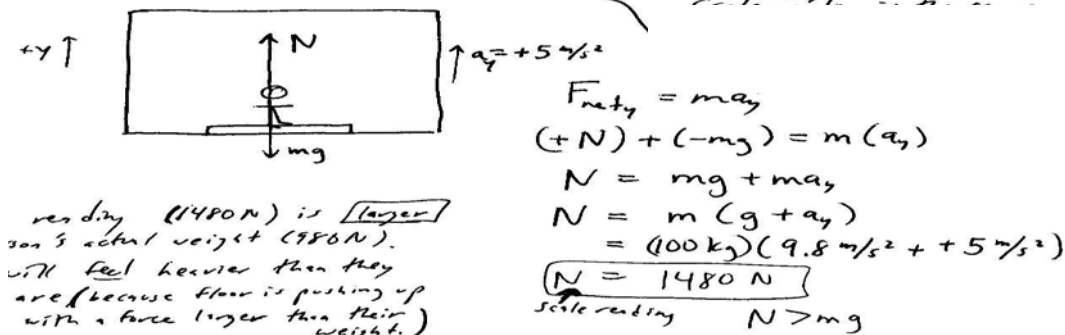 +y
N
a_y = +5 m/s²
mg
F_net y = ma_y
(+N) + (-mg) = m(a_y)
N = mg + ma_y
N = m(g + a_y)
= (100 kg)(9.8 m/s² + +5 m/s²)
N = 1480 N
scale reading N > mg
reading (1480N) is larger
son's actual weight (980N).
will feel heavier than they
are (because floor is pushing up
with a force larger than their
weight.)